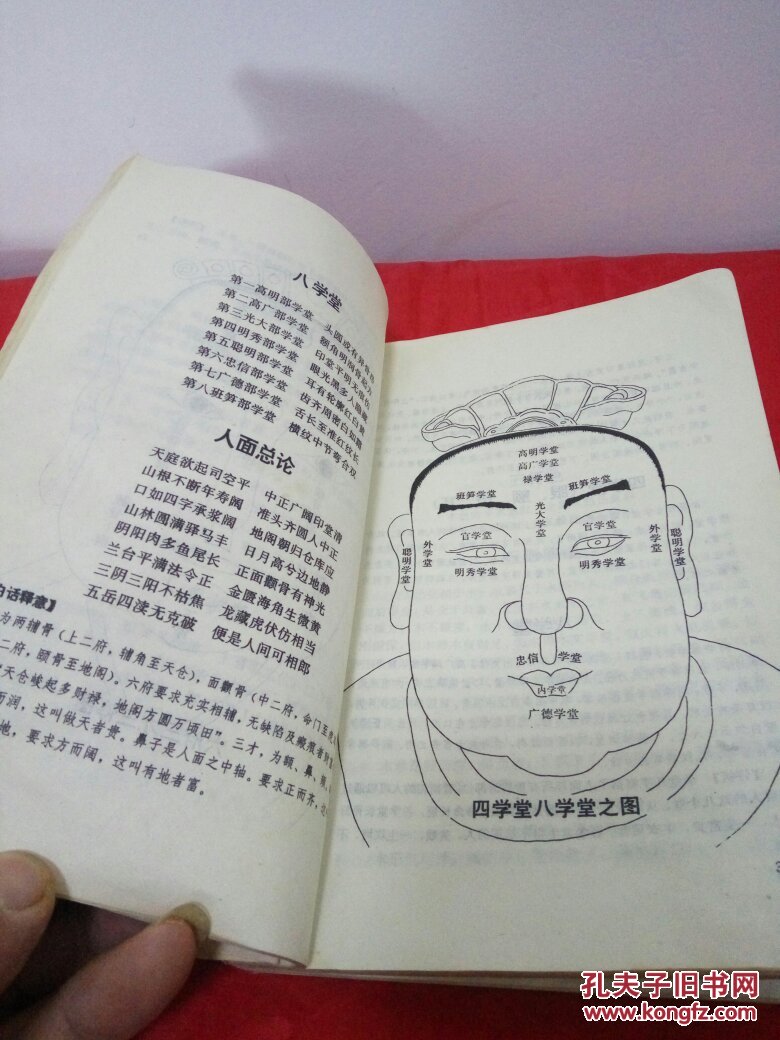 八学堂
第一高明部学堂 头圆或有异骨
第二高广部学堂 额角明润骨起方
第三光大部学堂 印堂平明无痕伤
第四明秀部学堂 眼光黑多人隐藏
第五聪明部学堂 耳有轮廓红白黄
第六忠信部学堂 齿齐周密白如霜
第七广德部学堂 舌长至准红纹长
第八班笋部学堂 横纹中节弯合双
人面总论
天庭欲起司空平 中正广阔印堂清
山根不断年寿阔 准头齐圆人中正
口如四字承浆阔 地阁朝归仓库应
山林圆满驿马丰 日月高兮边地静
阴阳肉多鱼尾长 正面颧骨有神光
兰台平满法令正 金匮海角生微黄
三阴三阳不枯焦 龙藏虎伏仿相当
五岳四渎无克破 便是人间可相郎
白话释意】
为两辅骨（上二府，辅角至天仓），面颧骨（中二府，命门至虎
二府，颐骨至地阁）。六府要求充实相辅，无缺陷及瘢痕者
“天仓峻起多财禄，地阁方圆万顷田”。三才，为额、鼻、
而润，这叫做天者贵。鼻子是人面之中轴。要求正而齐，
地，要求方而阔，这叫有地者富。
高明学堂
高广学堂
禄学堂
班笋学堂 班笋学堂
光大学堂
官学堂 官学堂
聪明学堂 外学堂 外学堂 聪明学堂
明秀学堂 明秀学堂
忠信 学堂
内学堂
广德学堂
四学堂八学堂之图
孔夫子旧书网
www.kongfz.com